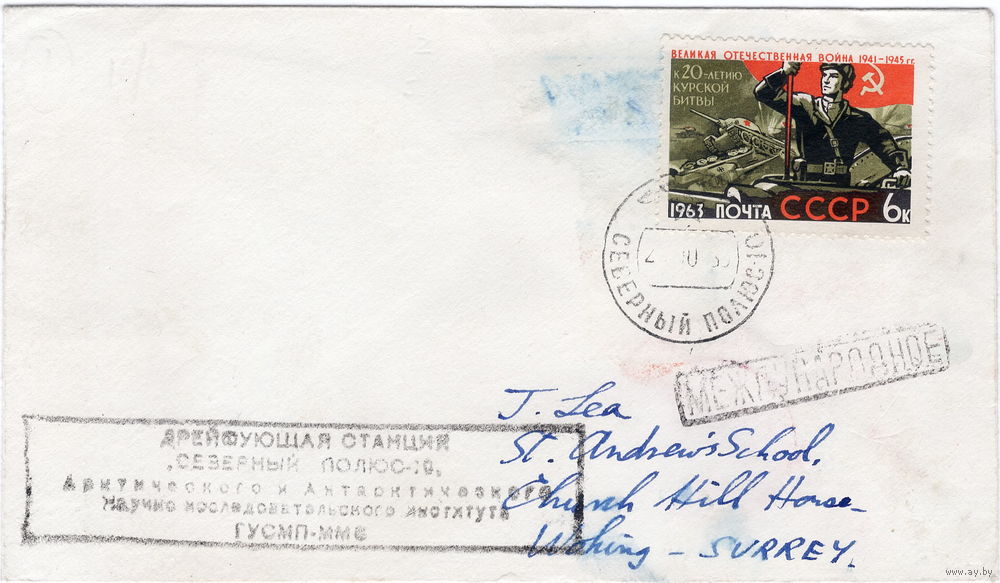 ВЕЛИКАЯ ОТЕЧЕСТВЕННАЯ ВОЙНА 1941-1945 гг.
К 20-ЛЕТИЮ
КУРСКОЙ
БИТВЫ
1963 ПОЧТА СССР 6к
СЕВЕРНЫЙ ПОЛЮС-10
МЕЖДУНАРОДНОЕ
J. Lea
St. Andrew's School,
Church Hill House
Woking - SURREY.
ДРЕЙФУЮЩАЯ СТАНЦИЯ
"СЕВЕРНЫЙ ПОЛЮС-10"
Арктического и Антарктического
Научно исследовательского института
ГУСМП-ММФ
www.ay.by